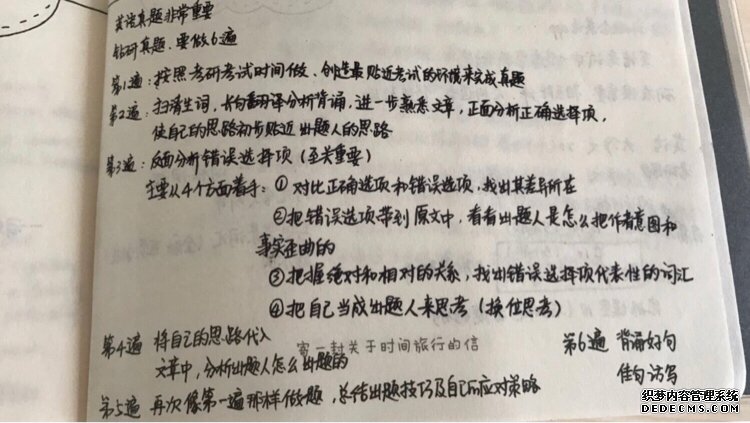 英语真题非常重要
钻研真题、要做6遍
第1遍：按照考研考试时间做、创造最贴近考试的环境来完成真题
第2遍：扫清生词，长句翻译分析背诵，进一步熟悉文章，正面分析正确选择项，
使自己的思路初步贴近出题人的思路
第3遍：反面分析错误选择项（至关重要）
主要从4个方面着手：①对比正确选项和错误选项，找出其差异所在
②把错误选项带到原文中，看看出题人是怎么把作者意图和
事实歪曲的
③把握绝对和相对的关系，找出错误选择项代表性的词汇
④把自己当成出题人来思考（换位思考）
第4遍 将自己的思路代入
文章中，分析出题人怎么出题的
寄一封关于时间旅行的信
第6遍 背诵好句
佳句仿写
第5遍 再次像第一遍那样做题，总结出题技巧及自己应对策略
织梦内容管理系统
DEDECMS.COM